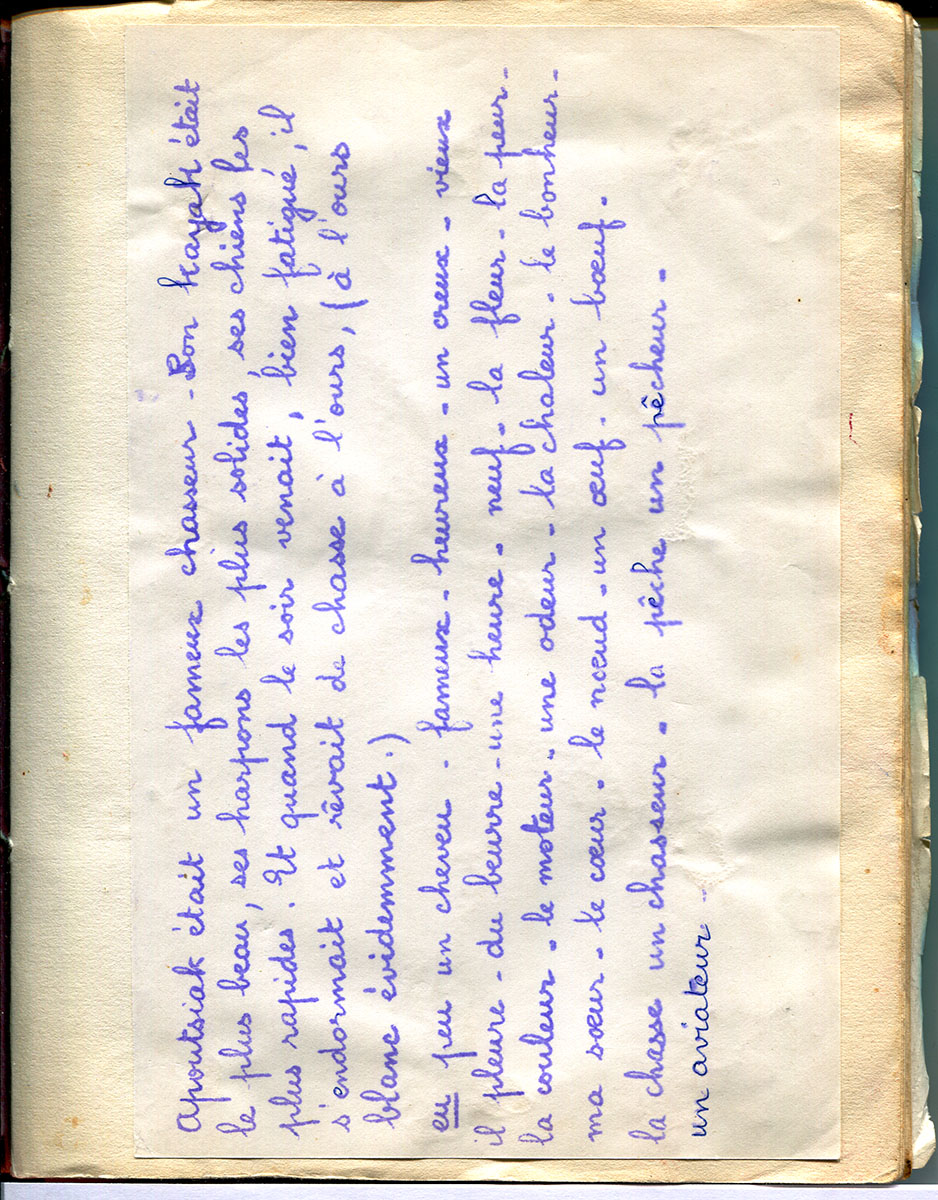 Apoutsiak était un fameux chasseur - Son kayak était
le plus beau, ses harpons les plus solides, ses chiens les
plus rapides. Et quand le soir venait, bien fatigué, il
s'endormait et rêvait de chasse à l'ours, (à l'ours
blanc évidemment.)
eu peu un cheveu - fameux - heureux - un creux - vieux
il pleure - du beurre - une heure - neuf - la fleur - la peur -
la couleur - le moteur - une odeur - la chaleur - le bonheur -
ma sœur - le cœur - le nœud - un œuf - un bœuf -
la chasse un chasseur - la pêche un pêcheur -
un aviateur -